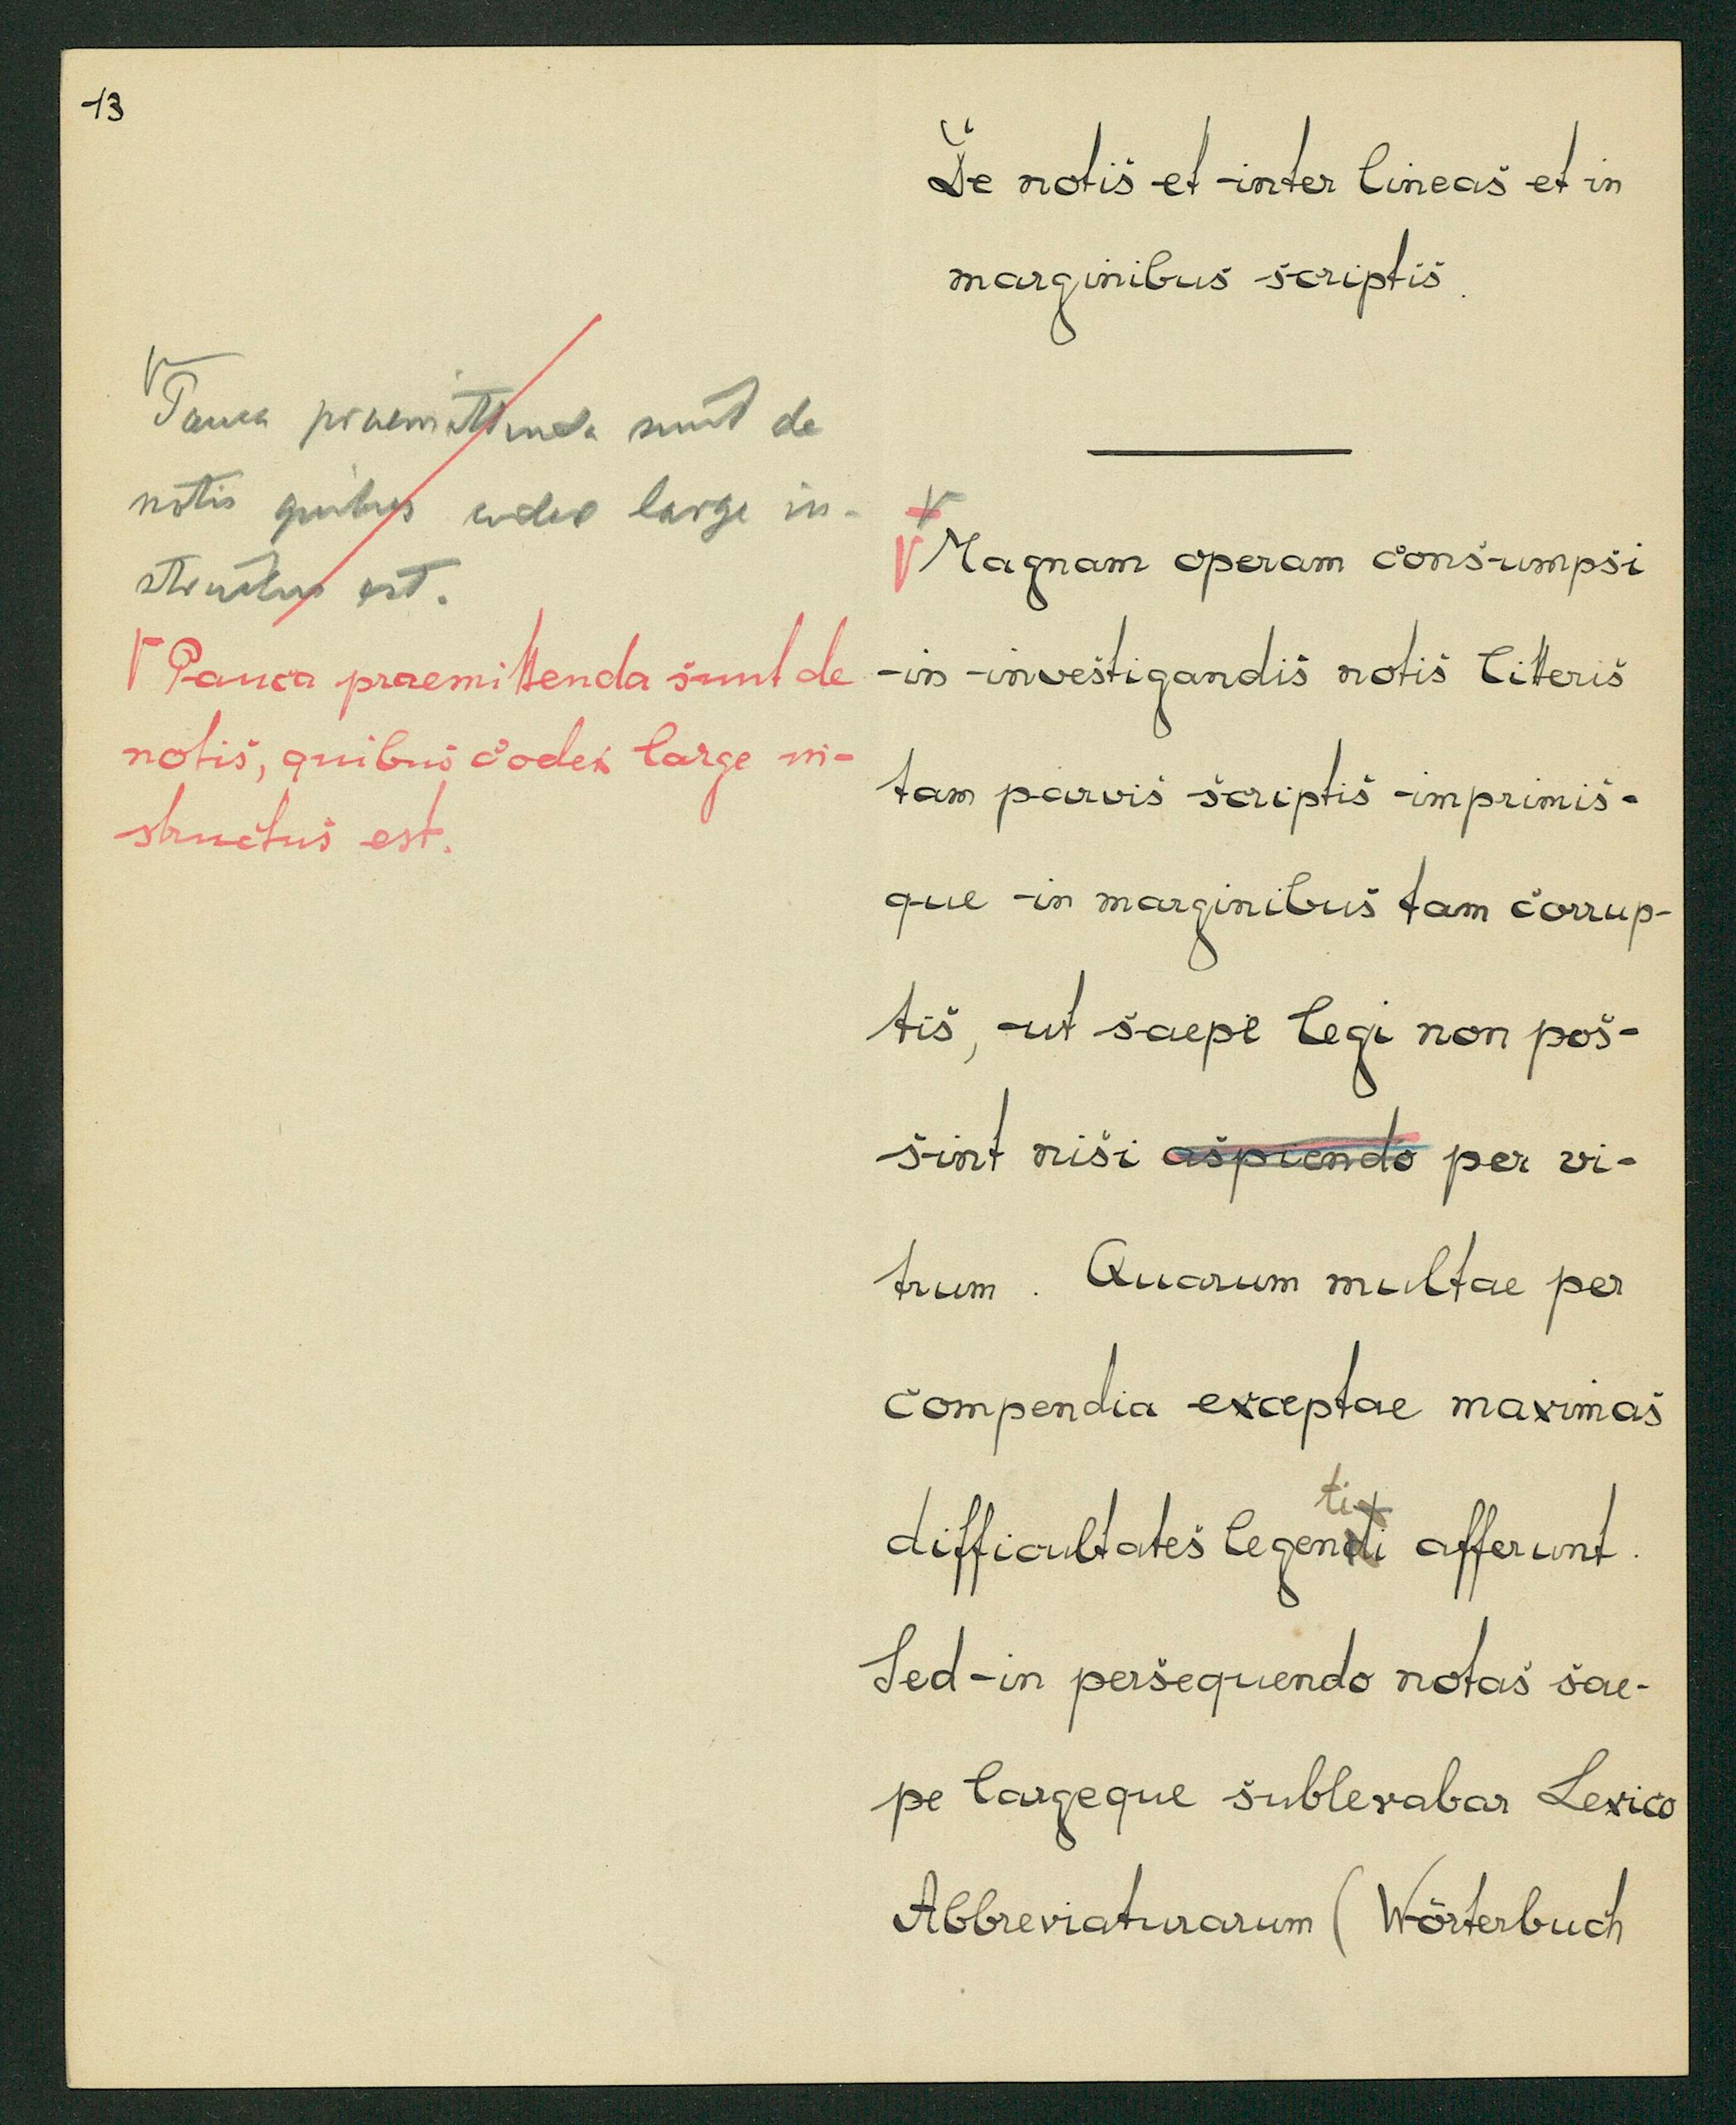 13
De notis et inter lineas et in
marginibus scriptis.
Pauca praemittenda sunt de
notis quibus codex large in-
structus est.
Pauca praemittenda sunt de
notis, quibus codex large in-
structus est.
Magnam operam consumpsi
in investigandis notis litteris
tam parvis scriptis imprimis-
que in marginibus tam corrup-
tis, ut saepe legi non pos-
sint nisi aspiendo per vi-
trum. Quarum multae per
compendia exceptae maximas
ti
difficultates legendi afferunt.
Sed in persequendo notas sae-
pe largeque sublevabar Lexico
Abbreviaturarum (Wörterbuch